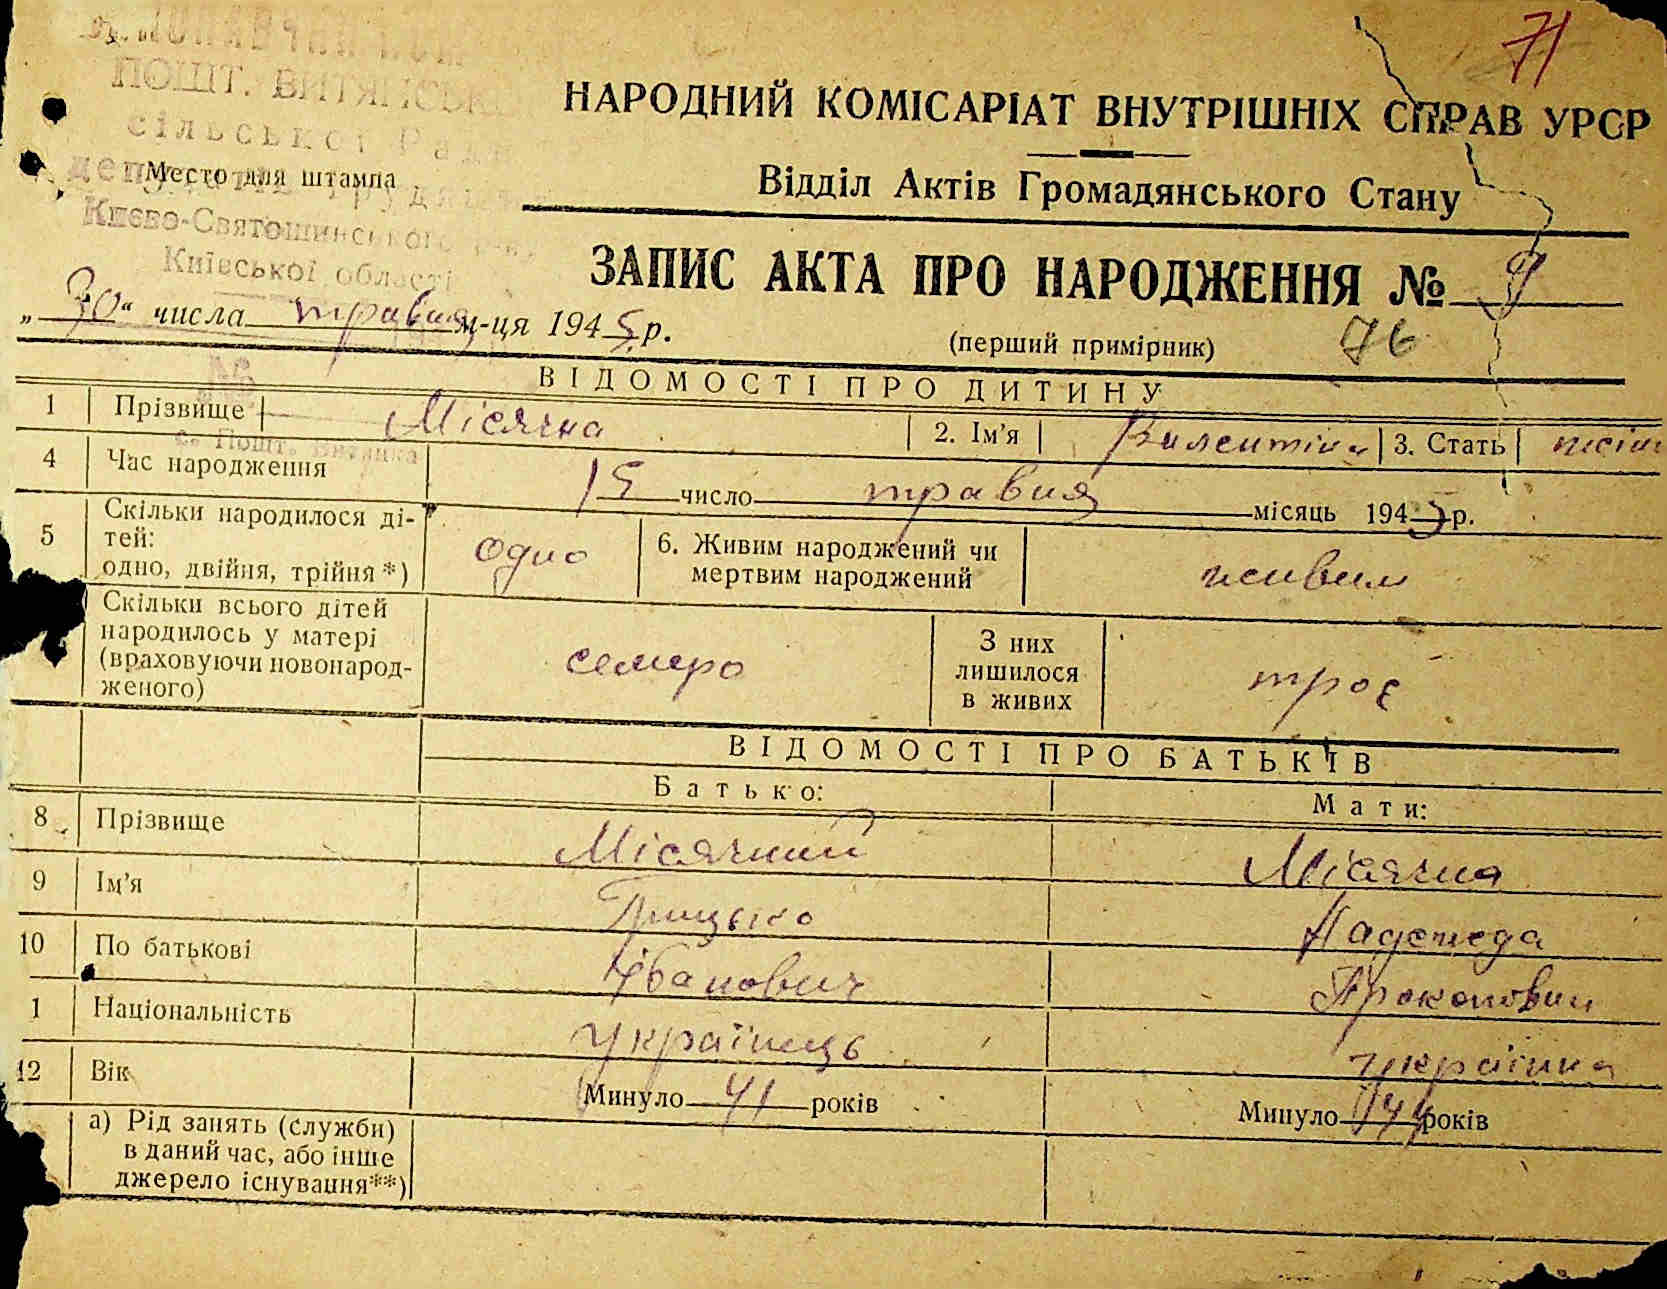 71
ПОШТ. ВИТЯНСЬК
сільської Рад
депутатів труд
Києво-Святошинського р-ну
Київської області
Место для штампа
НАРОДНИЙ КОМІСАРІАТ ВНУТРІШНІХ СПРАВ УРСР
Відділ Актів Громадянського Стану
ЗАПИС АКТА ПРО НАРОДЖЕННЯ № 9
„30“ числа травня м-ця 1945 р.
(перший примірник) 76
№
ВІДОМОСТІ ПРО ДИТИНУ
1 Прізвище Місячна 2. Ім’я Валентіна 3. Стать жіноч
с. Пошт. Витянка
4 Час народження 15 число травня місяць 1945 р.
5 Скільки народилося ді-
тей:
одно, двійня, трійня*) одно 6. Живим народжений чи
мертвим народжений живим
Скільки всього дітей
народилось у матері
(враховуючи новонарод-
женого) семеро З них
лишилося
в живих троє
ВІДОМОСТІ ПРО БАТЬКІВ
Батько: Мати:
8 Прізвище Місячний Місячна
9 Ім’я Грицько Надежда
10 По батькові Іванович Прокопович
1 Національність українець українка
12 Вік Минуло 41 років Минуло 44 років
а) Рід занять (служби)
в даний час, або інше
джерело існування**)